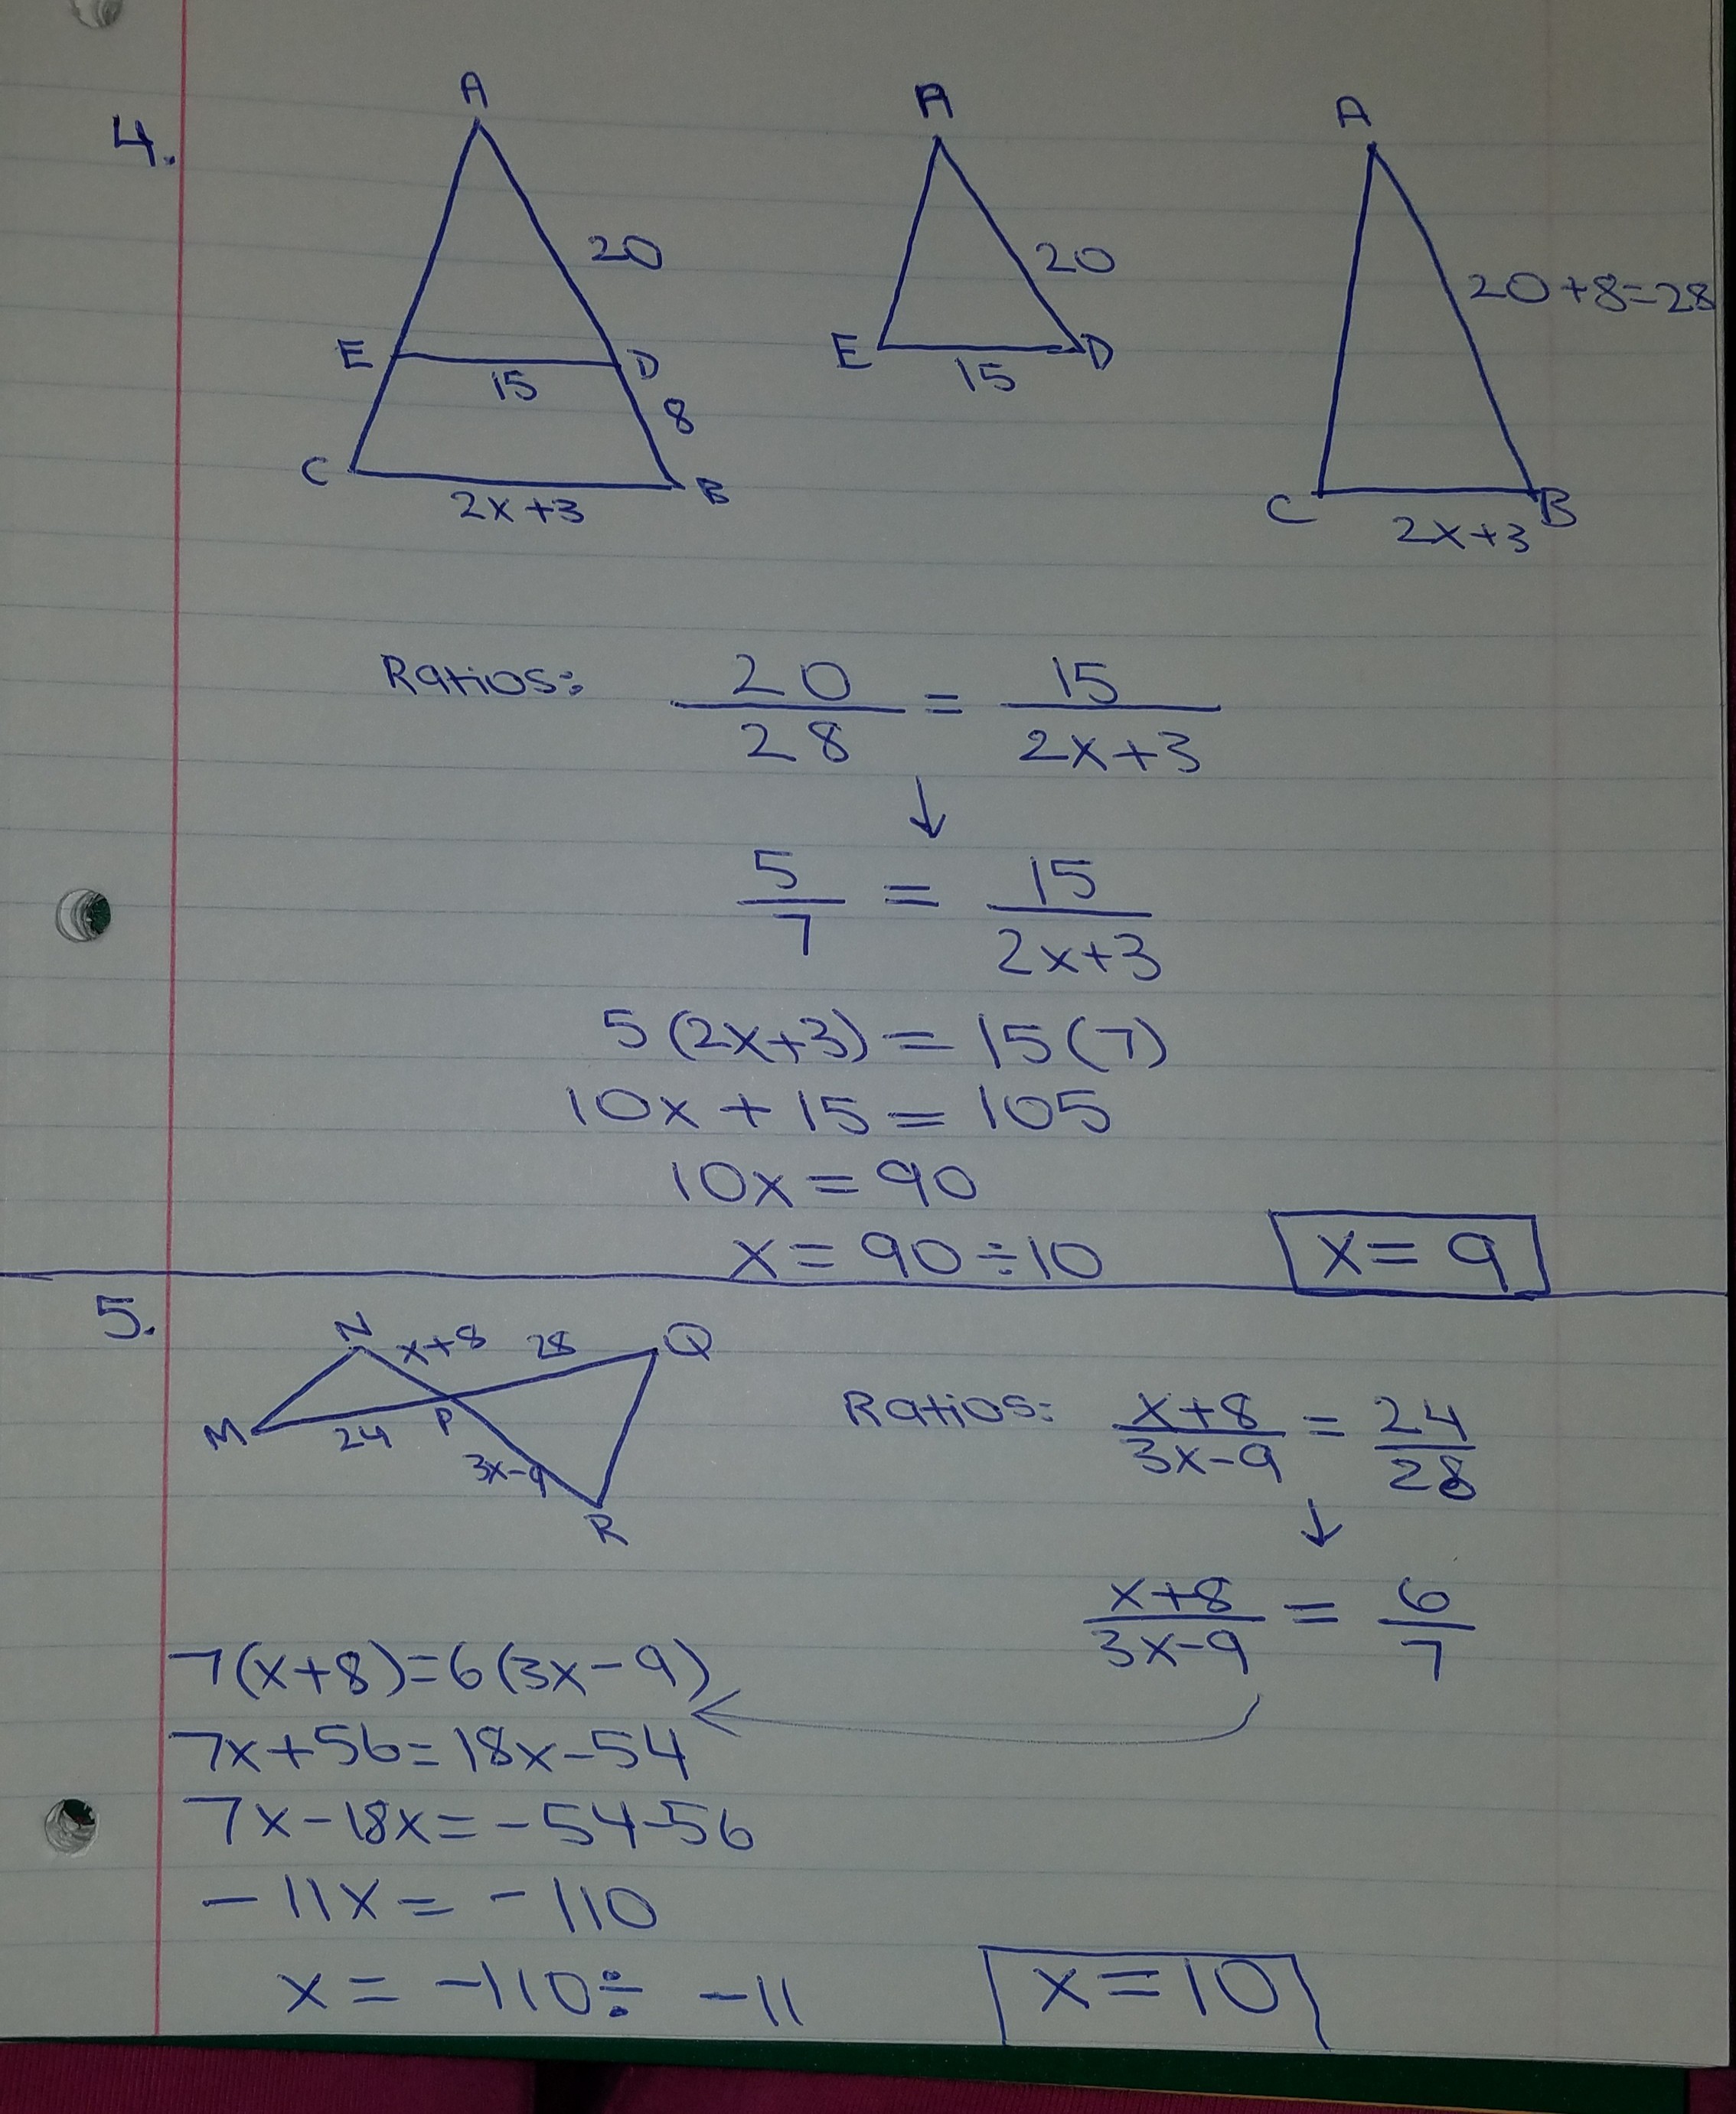 4.
A
20
E
D
15
8
C
B
2x+3
A
20
E
D
15
A
20+8=28
C
B
2x+3
Ratios: 20/28 = 15/2x+3
↓
5/7 = 15/2x+3
5(2x+3) = 15(7)
10x + 15 = 105
10x = 90
x = 90 ÷ 10
x = 9
5.
N
x+8
28
Q
M
24
P
3x-9
R
Ratios: x+8/3x-9 = 24/28
↓
x+8/3x-9 = 6/7
7(x+8)=6(3x-9)
7x+56=18x-54
7x-18x=-54-56
-11x = -110
x = -110 ÷ -11
x=10